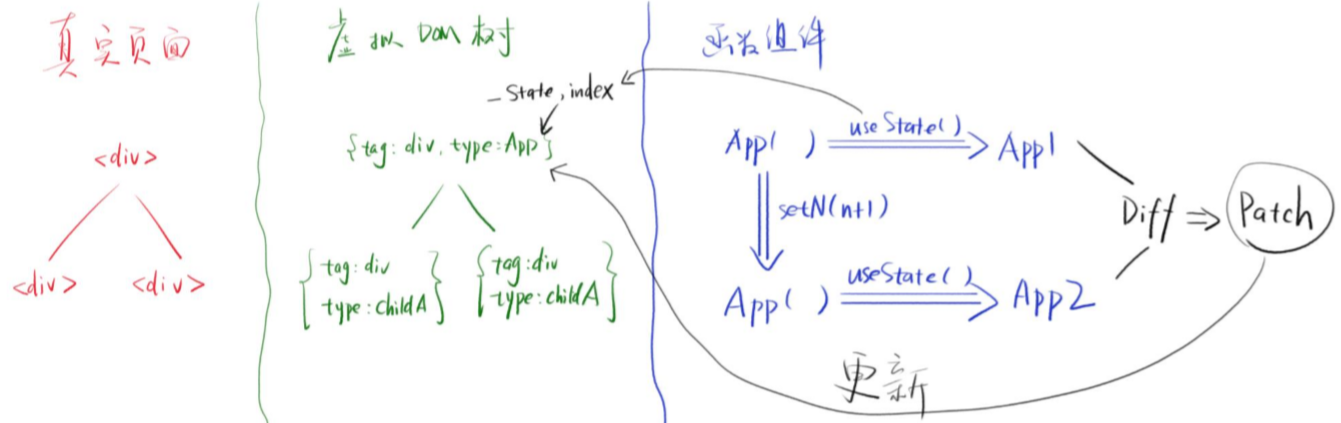 真实页面
<div>
<div> <div>
虚拟 DOM 树
_state, index
{tag: div, type: App}
{tag: div
type: childA}
{tag: div
type: childA}
函数组件
App( ) useState() App1
setN(n+1)
App( ) useState() App2
Diff ⇒ Patch
更新